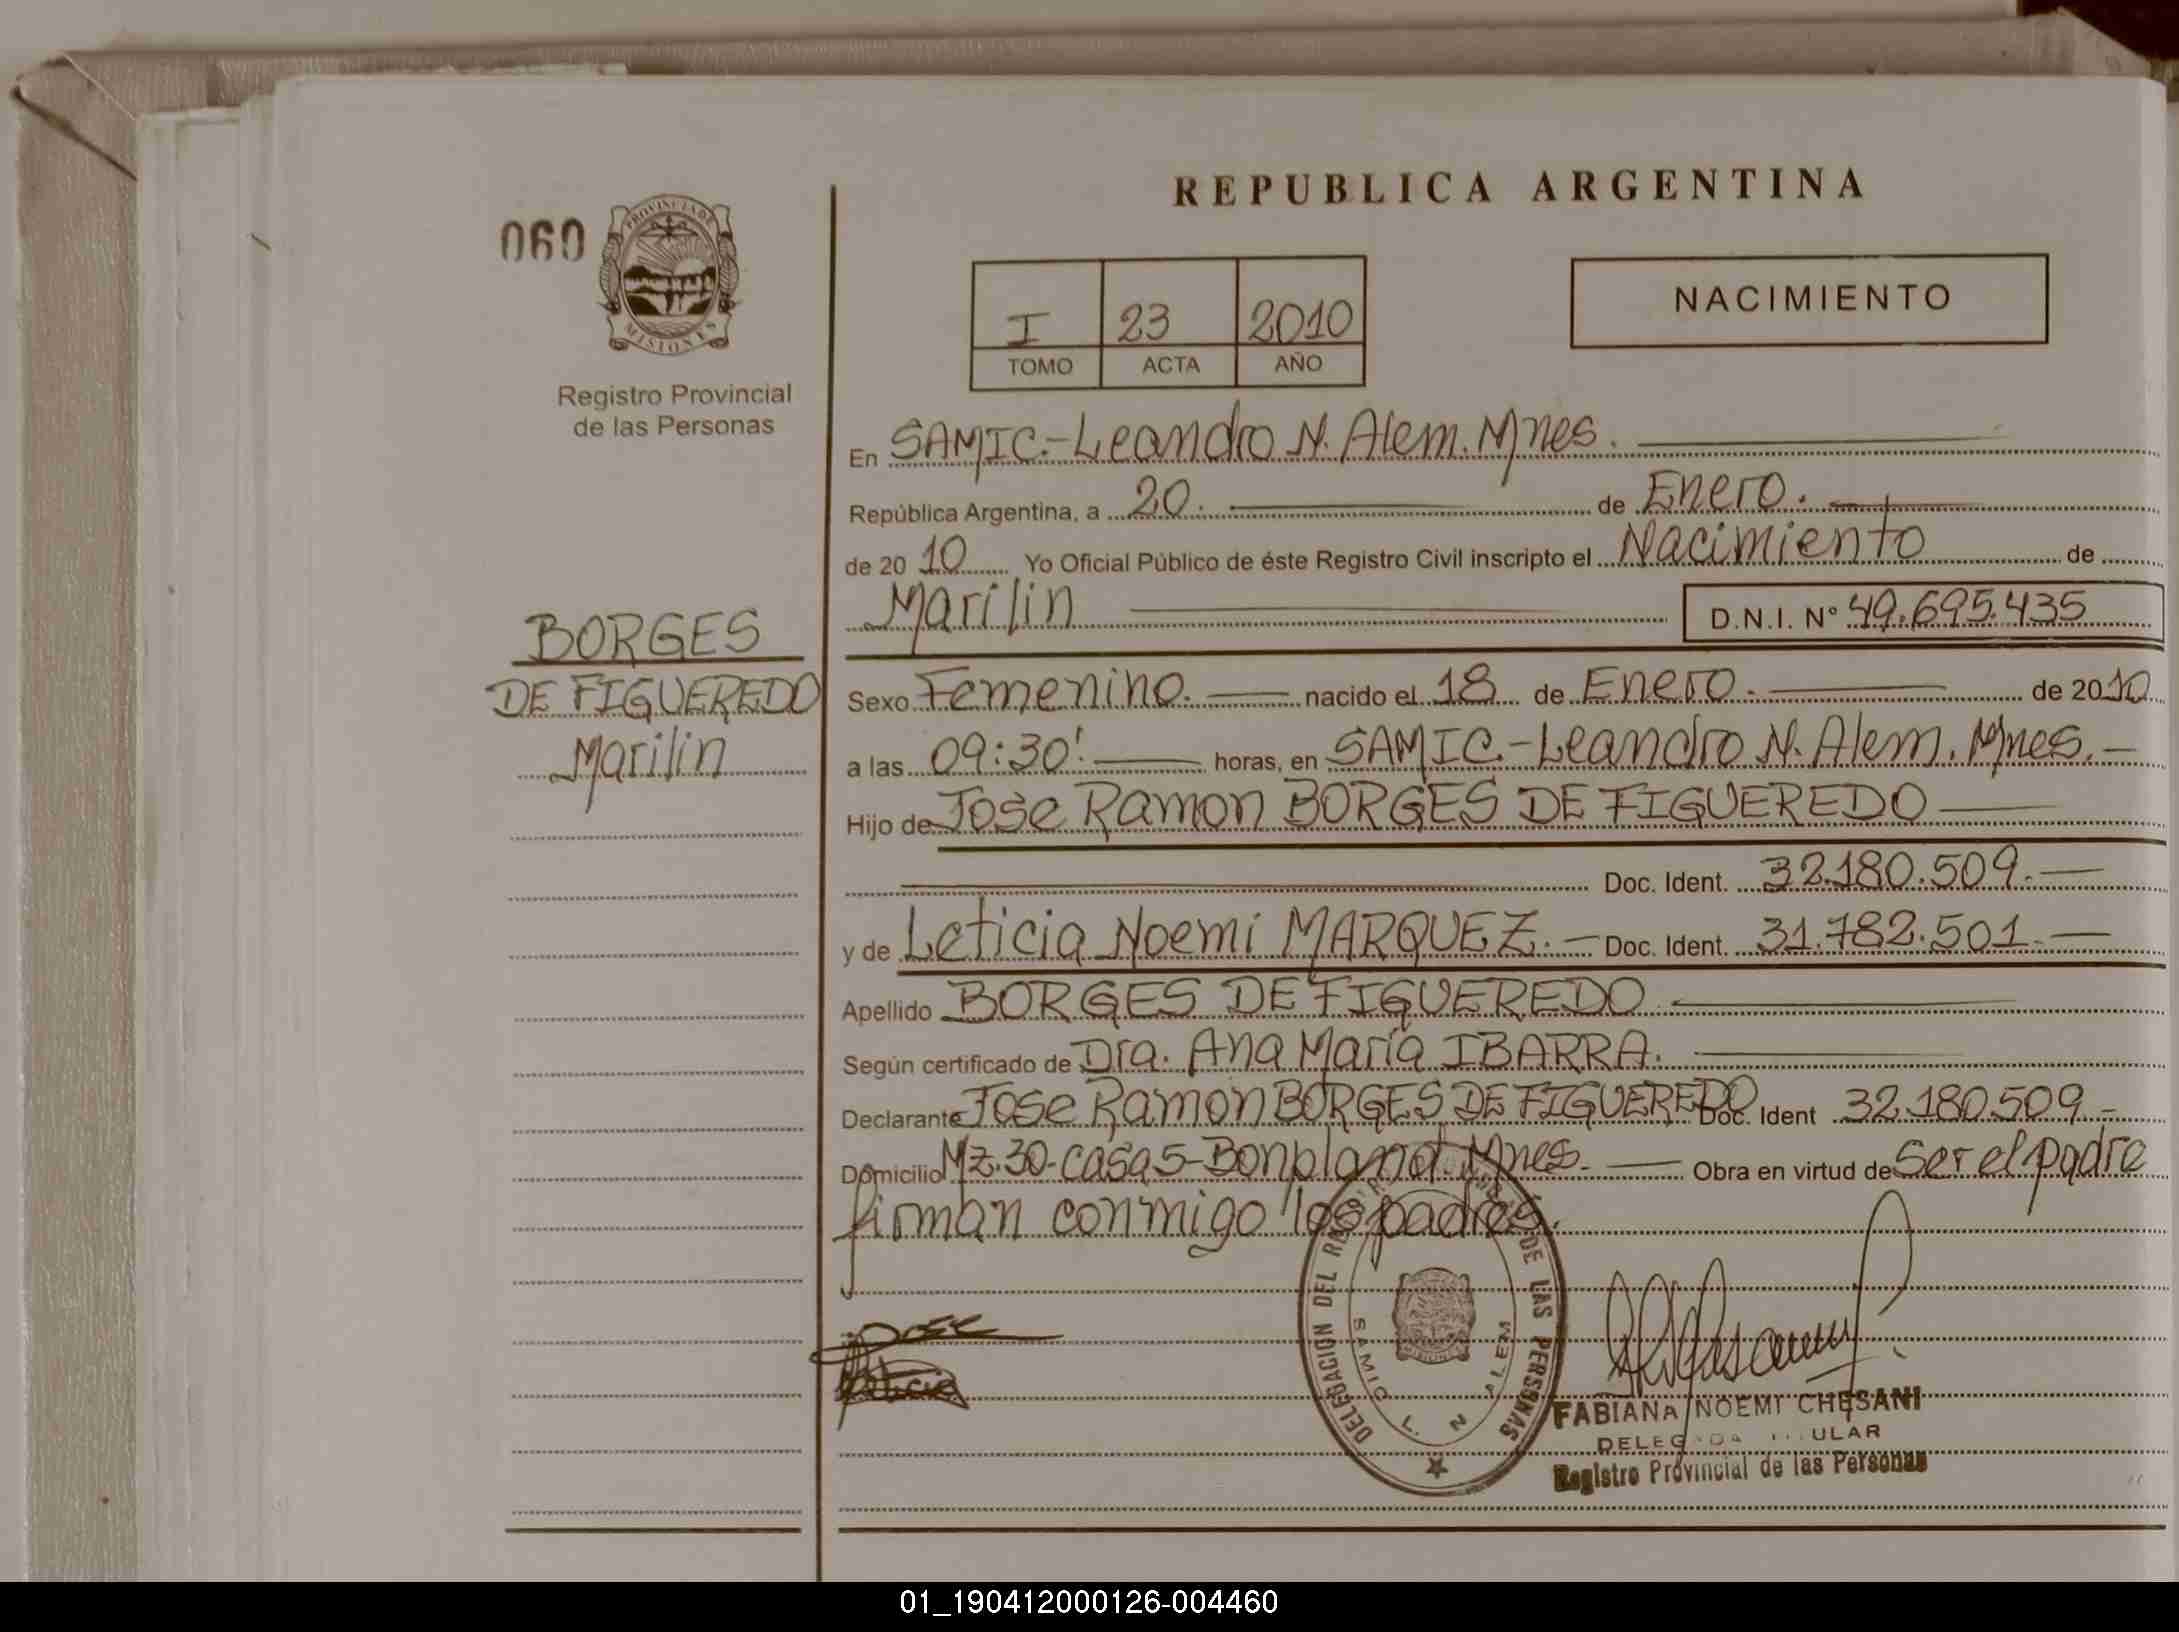 REPUBLICA ARGENTINA
060
PROVINCIA DE
MISIONES
Registro Provincial
de las Personas
I 23 2010
TOMO ACTA AÑO
NACIMIENTO
En SAMIC.-Leandro N. Alem. Mnes.
República Argentina, a 20. de Enero.
de 2010 Yo Oficial Público de éste Registro Civil inscripto el Nacimiento de
Marilin D.N.I. N° 49.695.435
BORGES
DE FIGUEREDO
Marilin
Sexo Femenino. nacido el 18 de Enero. de 2010
a las 09:30' horas, en SAMIC.-Leandro N. Alem. Mnes.-
Hijo de Jose Ramon BORGES DE FIGUEREDO
Doc. Ident. 32.180.509.-
y de Leticia Noemi MARQUEZ.- Doc. Ident. 31.782.501.-
Apellido BORGES DE FIGUEREDO
Según certificado de Dra. Ana María IBARRA.
Declarante Jose Ramon BORGES DE FIGUEREDO Doc. Ident 32.180.509-
Domicilio Mz.30-casa5-Bonpland. Mnes. Obra en virtud de Ser el padre
firman conmigo los padres.
Jose
DELEGACION DEL DE LAS PERSONAS
SAMIC L. N ALEM
FABIANA NOEMI CHESANI
DELEGADA TITULAR
Registro Provincial de las Personas
01_190412000126-004460